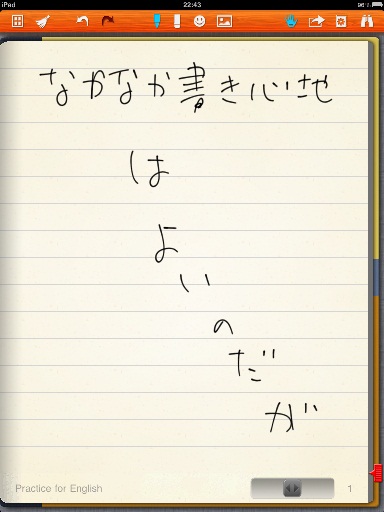 iPad 22:43 96%
なかなか書き心地
は
よ
い
の
だ
が
Practice for English 1